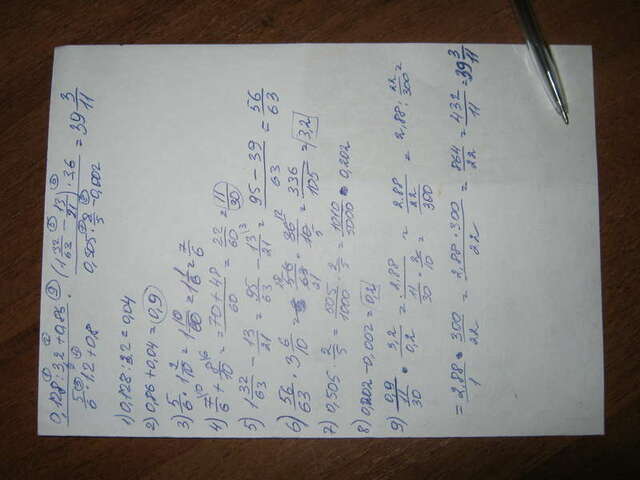 0,128 : 3,2 + 0,86 / 5/6 · 1,2 + 0,8 · (1 32/63 − 13/21) · 3,6 / 0,505 · 2/5 − 0,002 = 39 3/11
1) 0,128 : 3,2 = 0,04
2) 0,86 + 0,04 = 0,9
3) 5/6 · 1 2/10 = 1 10/60 = 1 1/6 = 7/6
4) 7/6 + 8/10 = 70 + 48 / 60 = 22/60 = 11/30
5) 1 32/63 − 13/21 = 95/63 − 13/21 = 95 − 39 / 63 = 56/63
6) 56/63 · 3 6/10 = 56/63 · 36/10 = 336/105 = 3,2
7) 0,505 · 2/5 = 505/1000 · 2/5 = 1010/5000 = 0,202
8) 0,202 − 0,002 = 0,2
9) 0,9 / 11/30 · 3,2/0,2 = 2,88 / 11/30 · 2/10 = 2,88 / 22/300 = 2,88 : 22/300 =
= 2,88/1 · 300/22 = 2,88 · 300 / 22 = 864/22 = 432/11 = 39 3/11